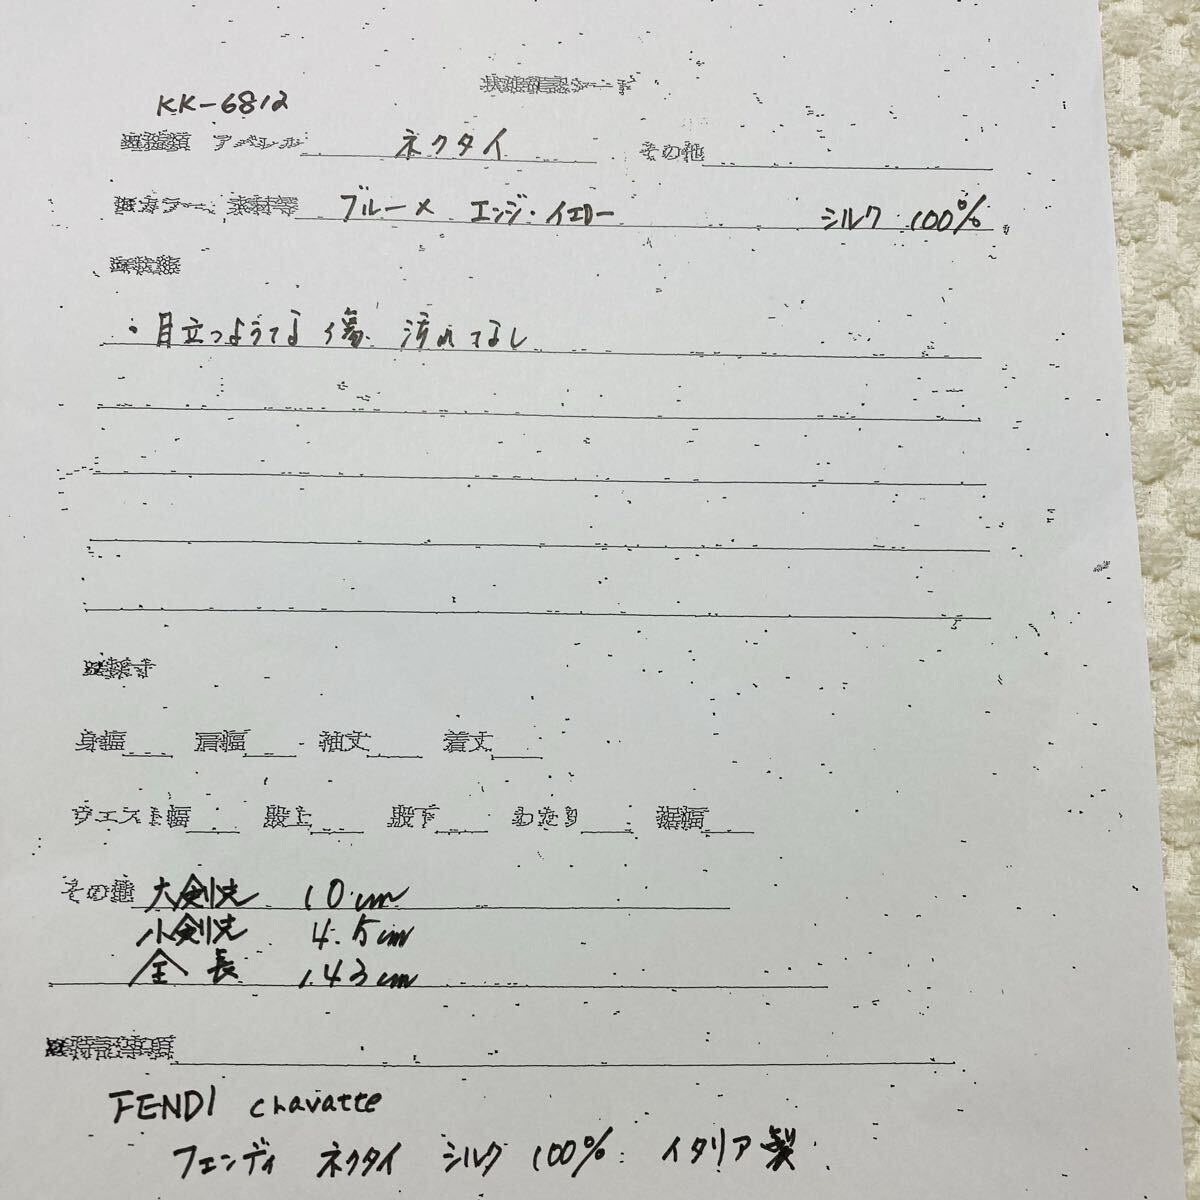 KK-6812
アパレル ネクタイ その他
カラー・素材等 ブルー× エンジ・イエロー シルク 100%
・目立つような傷、汚れてなし
採寸
身幅 肩幅 袖丈 着丈
ウエスト幅 股上 股下 わたり 裾幅
その他 大剣先 10cm
小剣先 4.5cm
全長 143cm
特記事項
FENDI chavatte
フェンディ ネクタイ シルク 100% イタリア製